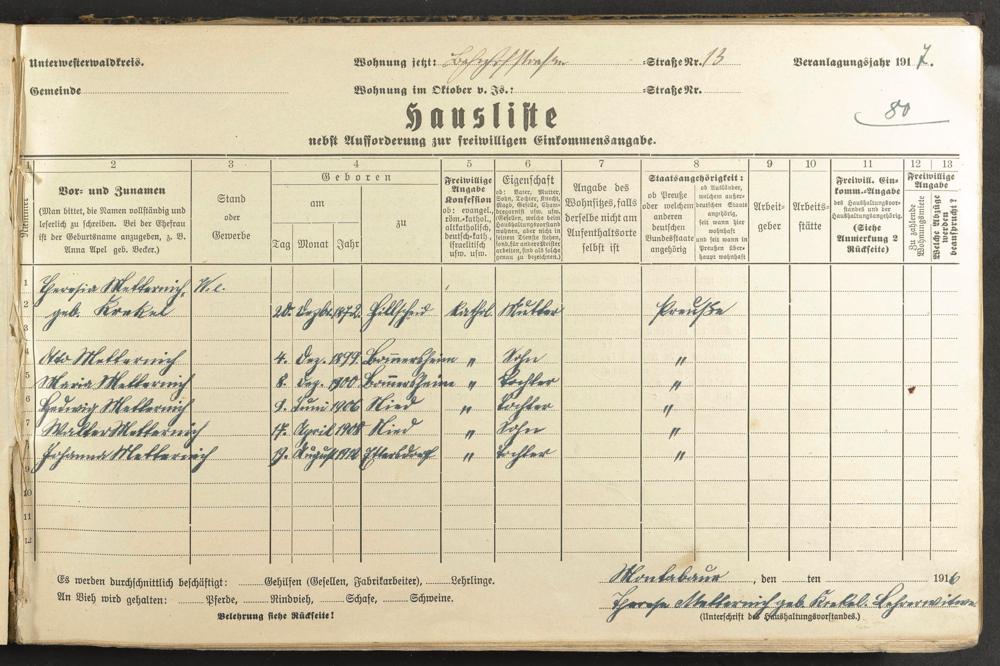 Unterwesterwaldkreis. Wohnung jetzt: Bahnhofstraßen =Straße Nr. 13 Veranlagungsjahr 1917.
Gemeinde Wohnung im Oktober v. Js.: =Straße Nr.
80
Hausliste
nebst Aufforderung zur freiwilligen Einkommensangabe.
1 2 3 4 5 6 7 8 9 10 11 12 13
Nummer
Vor- und Zunamen
(Man bittet, die Namen vollständig und
leserlich zu schreiben. Bei der Ehefrau
ist der Geburtsname anzugeben, z. B.
Anna Apel geb. Becker.)
Stand
oder
Gewerbe
Geboren
am
zu
Tag Monat Jahr
Freiwillige
Angabe
Konfession
ob: evangel.,
röm.-kathol.,
altkatholisch,
deutsch-kath.,
israelitisch
usw. usw.
Eigenschaft
ob: Vater, Mutter,
Sohn, Tochter, Knecht,
Magd, Geselle, Cham-
bregarnist usw. usw.
Gesellen, welche beim
Haushaltungsvorstand
wohnen, aber nicht in
seinem Dienste stehen,
sond. für andere Meister
arbeiten, sind als solche
genau zu bezeichnen.
Angabe des
Wohnsitzes, falls
derselbe nicht am
Aufenthaltsorte
selbst ist
Staatsangehörigkeit:
ob Preuße
oder welchem
anderen
deutschen
Bundesstaate
angehörig
ob Ausländer,
welchem außer-
deutschen Staate
angehörig,
seit wann hier
wohnhaft
und seit wann in
Preußen über-
haupt wohnhaft
Arbeit-
geber
Arbeits-
stätte
Freiwill. Ein-
komm.-Angabe
des Haushaltungsvor-
standes und der
Haushaltungsangehörig.
(Siehe
Anmerkung 2
Rückseite)
Freiwillige
Angabe
Zu zahlende
Wohnungsmiete
Welche Abzüge
werden
beansprucht?
1 Theresia Metternich,
2 geb. Krekel 20. Dezbr. 1872 Hillscheid kathol. Mutter Preuße
3
4 Otto Metternich 4. Dez. 1899 Bommersheim " Sohn "
5 Maria Metternich 8. Dez. 1900 Bommersheim " Tochter "
6 Hedwig Metternich 9. Juni 1906 Nied " Tochter "
7 Walter Metternich 17. April 1908 Nied " Sohn "
Johanna Metternich 19. August Ettersdorf " Tochter "
9
10
11
12
Es werden durchschnittlich beschäftigt: Gehilfen (Gesellen, Fabrikarbeiter), Lehrlinge.
An Vieh wird gehalten: Pferde, Rindvieh, Schafe, Schweine.
Belehrung siehe Rückseite!
Montabaur, den ten 1916
Therese Metternich geb. Krekel. Lehrerwitwe
(Unterschrift des Haushaltungsvorstandes.)